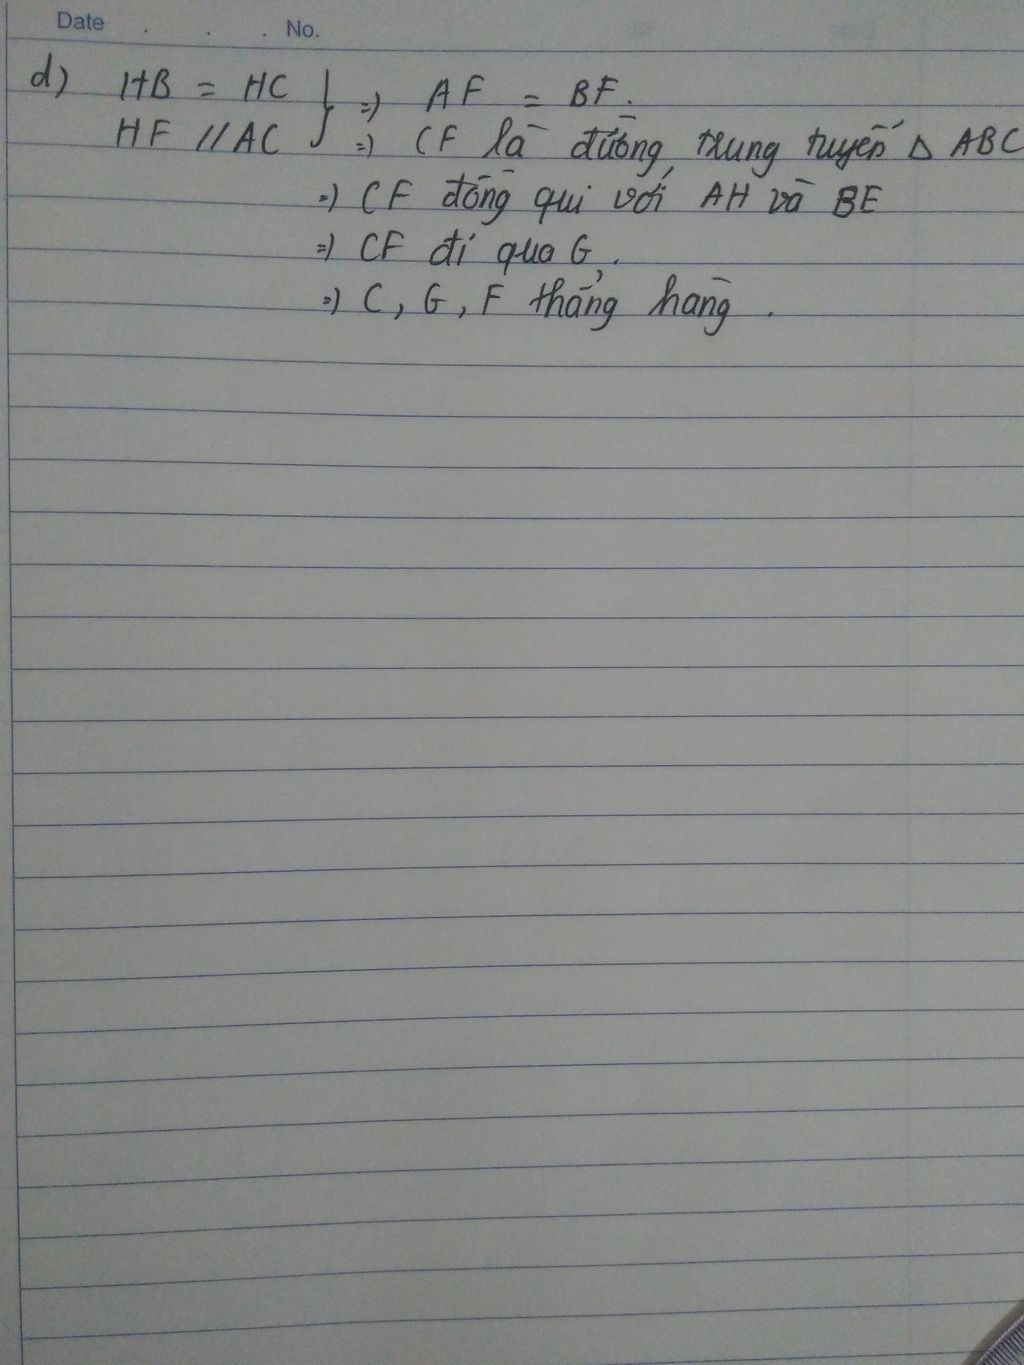 Date . . . No.
d) HB = HC } => AF = BF.
HF // AC => CF là đường trung tuyến Δ ABC
=> CF đồng qui với AH và BE
=> CF đi qua G.
=> C, G, F thẳng hàng.